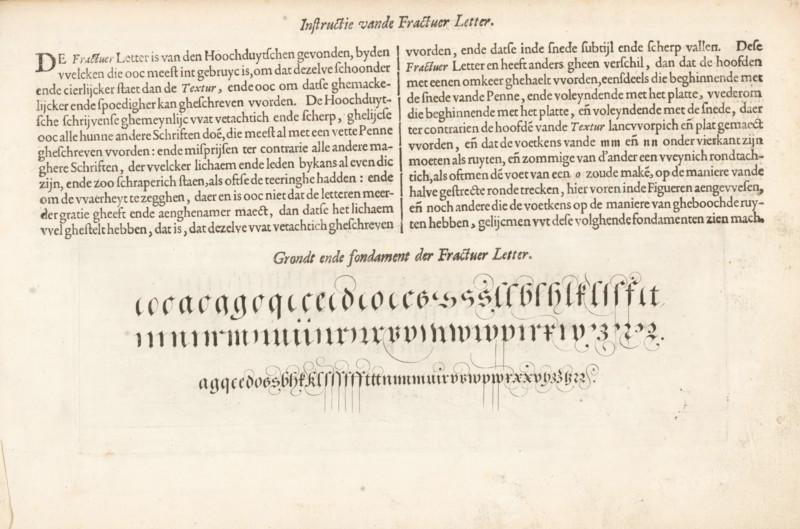 Inſtructie vande Fractuer Letter.
DE Fractuer Letter is van den Hoochduytſchen gevonden, byden
vvelcken die ooc meeſt int gebruyc is, om dat dezelve ſchoonder
ende cierlijcker ſtaet dan de Textur, ende ooc om datſe ghemacke-
lijcker ende ſpoedigher kan gheſchreven vvorden. De Hoochduyt-
ſche ſchrijvenſe ghemeynlijc vvat vetachtich ende ſcherp, ghelijcſe
ooc alle hunne andere Schriften doē, die meeſt al met een vette Penne
gheſchreven vvorden: ende miſprijſen ter contrarie alle andere ma-
ghere Schriften, der vvelcker lichaem ende leden bykans al even die
zijn, ende zoo ſchraperich ſtaen, als oftſe de teeringhe hadden: ende
om de vvaerheyt te zegghen, daer en is ooc niet dat de letteren meer-
der gratie gheeft ende aenghenamer maect, dan datſe het lichaem
vvel gheſtelt hebben, dat is, dat dezelve vvat vetachtich gheſchreven
vvorden, ende datſe inde ſnede ſubtijl ende ſcherp vallen. Deſe
Fractuer Letter en heeft anders gheen verſchil, dan dat de hoofden
met eenen omkeer ghehaelt vvorden, eenſdeels die beghinnende met
de ſnede vande Penne, ende voleyndende met het platte, vvederom
die beghinnende met het platte, eñ voleyndende met de ſnede, daer
ter contrarien de hoofdē vande Textur lancvvorpich eñ plat gemaect
vvorden, eñ dat de voetkens vande m m en n n onder vierkant zijn
moeten als ruyten, eñ zommige van d'ander een vveynich rondtach-
tich, als oftmen dē voet van een o zoude makē, op de maniere vande
halve geſtrecte ronde trecken, hier voren inde Figueren aengevveſen,
eñ noch andere die de voetkens op de maniere van gheboochde ruy-
ten hebben, gelijcmen vvt deſe volghende fondamenten zien mach.
Grondt ende fondament der Fractuer Letter.